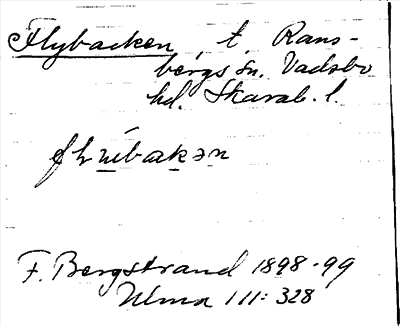 Flybacken, t. Rans-
bergs sn. Vadsbo
hd. Skarab. l.
F. Bergstrand 1898-99
Ulma 111: 328